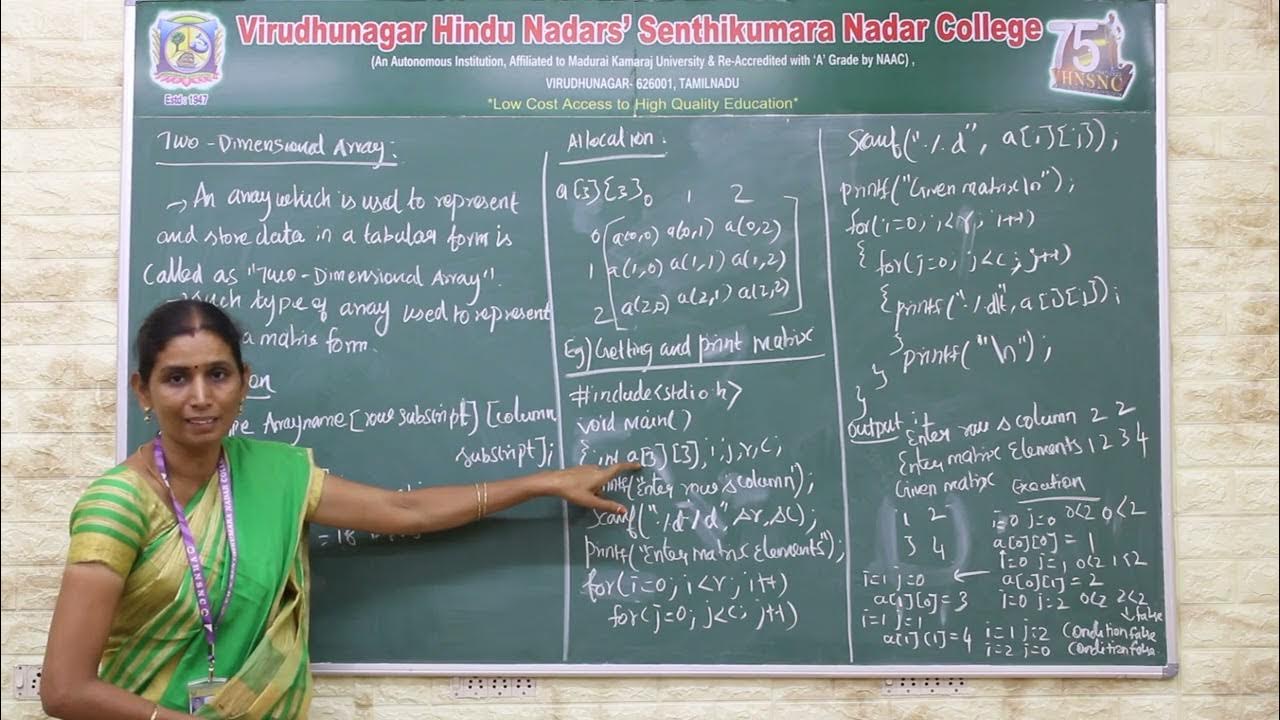 Virudhunagar Hindu Nadars' Senthikumara Nadar College
(An Autonomous Institution, Affiliated to Madurai Kamaraj University & Re-Accredited with 'A' Grade by NAAC) ,
VIRUDHUNAGAR- 626001, TAMILNADU
*Low Cost Access to High Quality Education*
Estd : 1947
75
VHNSNC
Two-Dimensional Array:
→ An array which is used to represent
and store data in a tabular form is
called as "Two-Dimensional Array".
such type of array used to represent
a matrix form.
Arrayname [row subscript] [column
subscript];
= 18
Allocation:
a[3][3]
0 1 2
0 a(0,0) a(0,1) a(0,2)
1 a(1,0) a(1,1) a(1,2)
2 a(2,0) a(2,1) a(2,2)
Eg) Getting and print matrix
#include<stdio.h>
void main()
{ int a[3][3], i, j, r, c;
printf("Enter row & column");
scanf("%d %d", &r, &c);
printf("Enter Matrix Elements");
for(i=0; i<r; i++)
for(j=0; j<c; j++)
scanf("%d", a[i][j]);
printf("Given matrix\n");
for(i=0; i<r; i++)
{ for(j=0; j<c; j++)
{ printf("%d\t", a[i][j]);
} printf("\n");
}
}
output:
Enter row & column 2 2
Enter matrix Elements 1 2 3 4
Given matrix
1 2
3 4
Execution
i=0 j=0 0<2 0<2
a[0][0] = 1
i=0 j=1 0<2 1<2
a[0][1] = 2
i=0 j=2 0<2 2<2
↓ false
i=1 j=0 ←
a[1][0] = 3
i=1 j=1
a[1][1] = 4
i=1 j=2 Condition false
i=2 j=0 Condition false
VHNSNC